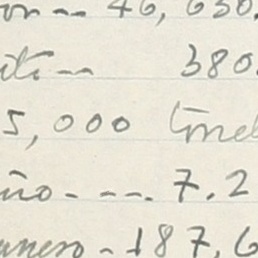 on-- 46, 630.
ita-- 380.
5,000 tonel
ño---. 7.2
anero-187,6